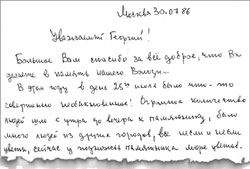 Москва 30.07.86
Уважаемый Георгий!
Большое Вам спасибо за всё доброе, что Вы
делаете в память нашего Володи.
В этом году в день 25го июля было что-то
совершенно необыкновенное! Огромное количество
людей шло с утра до вечера к памятнику, было
много людей из других городов, все несли и несли
цветы, сейчас у подножья памятника море цветов.